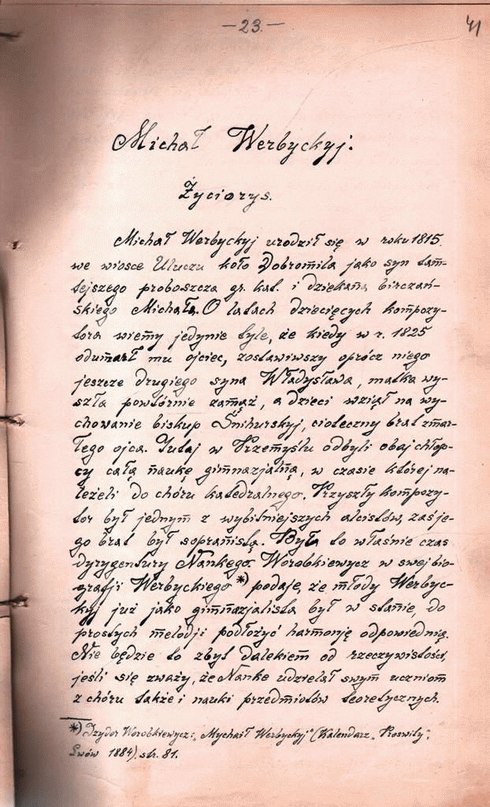 -23-
41
Michał Werbyckyj:
Życiorys.
Michał Werbyckyj urodził się w roku 1815
we wiosce Uluczu koło Dobromila jako syn tam-
tejszego proboszcza gr. kat. i dziekana birczań-
skiego Michała. O latach dziecięcych kompozy-
tora wiemy jedynie tyle, że kiedy w r. 1825
odumarł mu ojciec, zostawiwszy oprócz niego
jeszcze drugiego syna Władysława, matka wy-
szła powtórnie zamąż, a dzieci wziął na wy-
chowanie biskup Śnihurskyj, cioteczny brat zmar-
łego ojca. Tutaj w Przemyślu odbyli obaj chłop-
cy całą naukę gimnazjalną, w czasie której na-
leżeli do chóru katedralnego. Przyszły kompozy-
tor był jednym z wybitniejszych alcistów, zaś je-
go brat był sopranistą. Była to właśnie czas
dyrygentury Nankego. Worobkiewycz w swej bio-
grafji Werbyckiego *) podaje, że młody Werbyc-
kyj już jako gimnazjalista był w stanie, do
prostych melodji podłożyć harmonję odpowiednią.
Nie będzie to zbyt dalekiem od rzeczywistości,
jeśli się zważy, że Nanke udzielał swym uczniom
z chóru także i nauki przedmiotów teoretycznych.
*) Izydor Worobkewycz: „Mychaił Werbyckyj" (Kalendarz „Proswity",
Lwów 1884), str. 81.